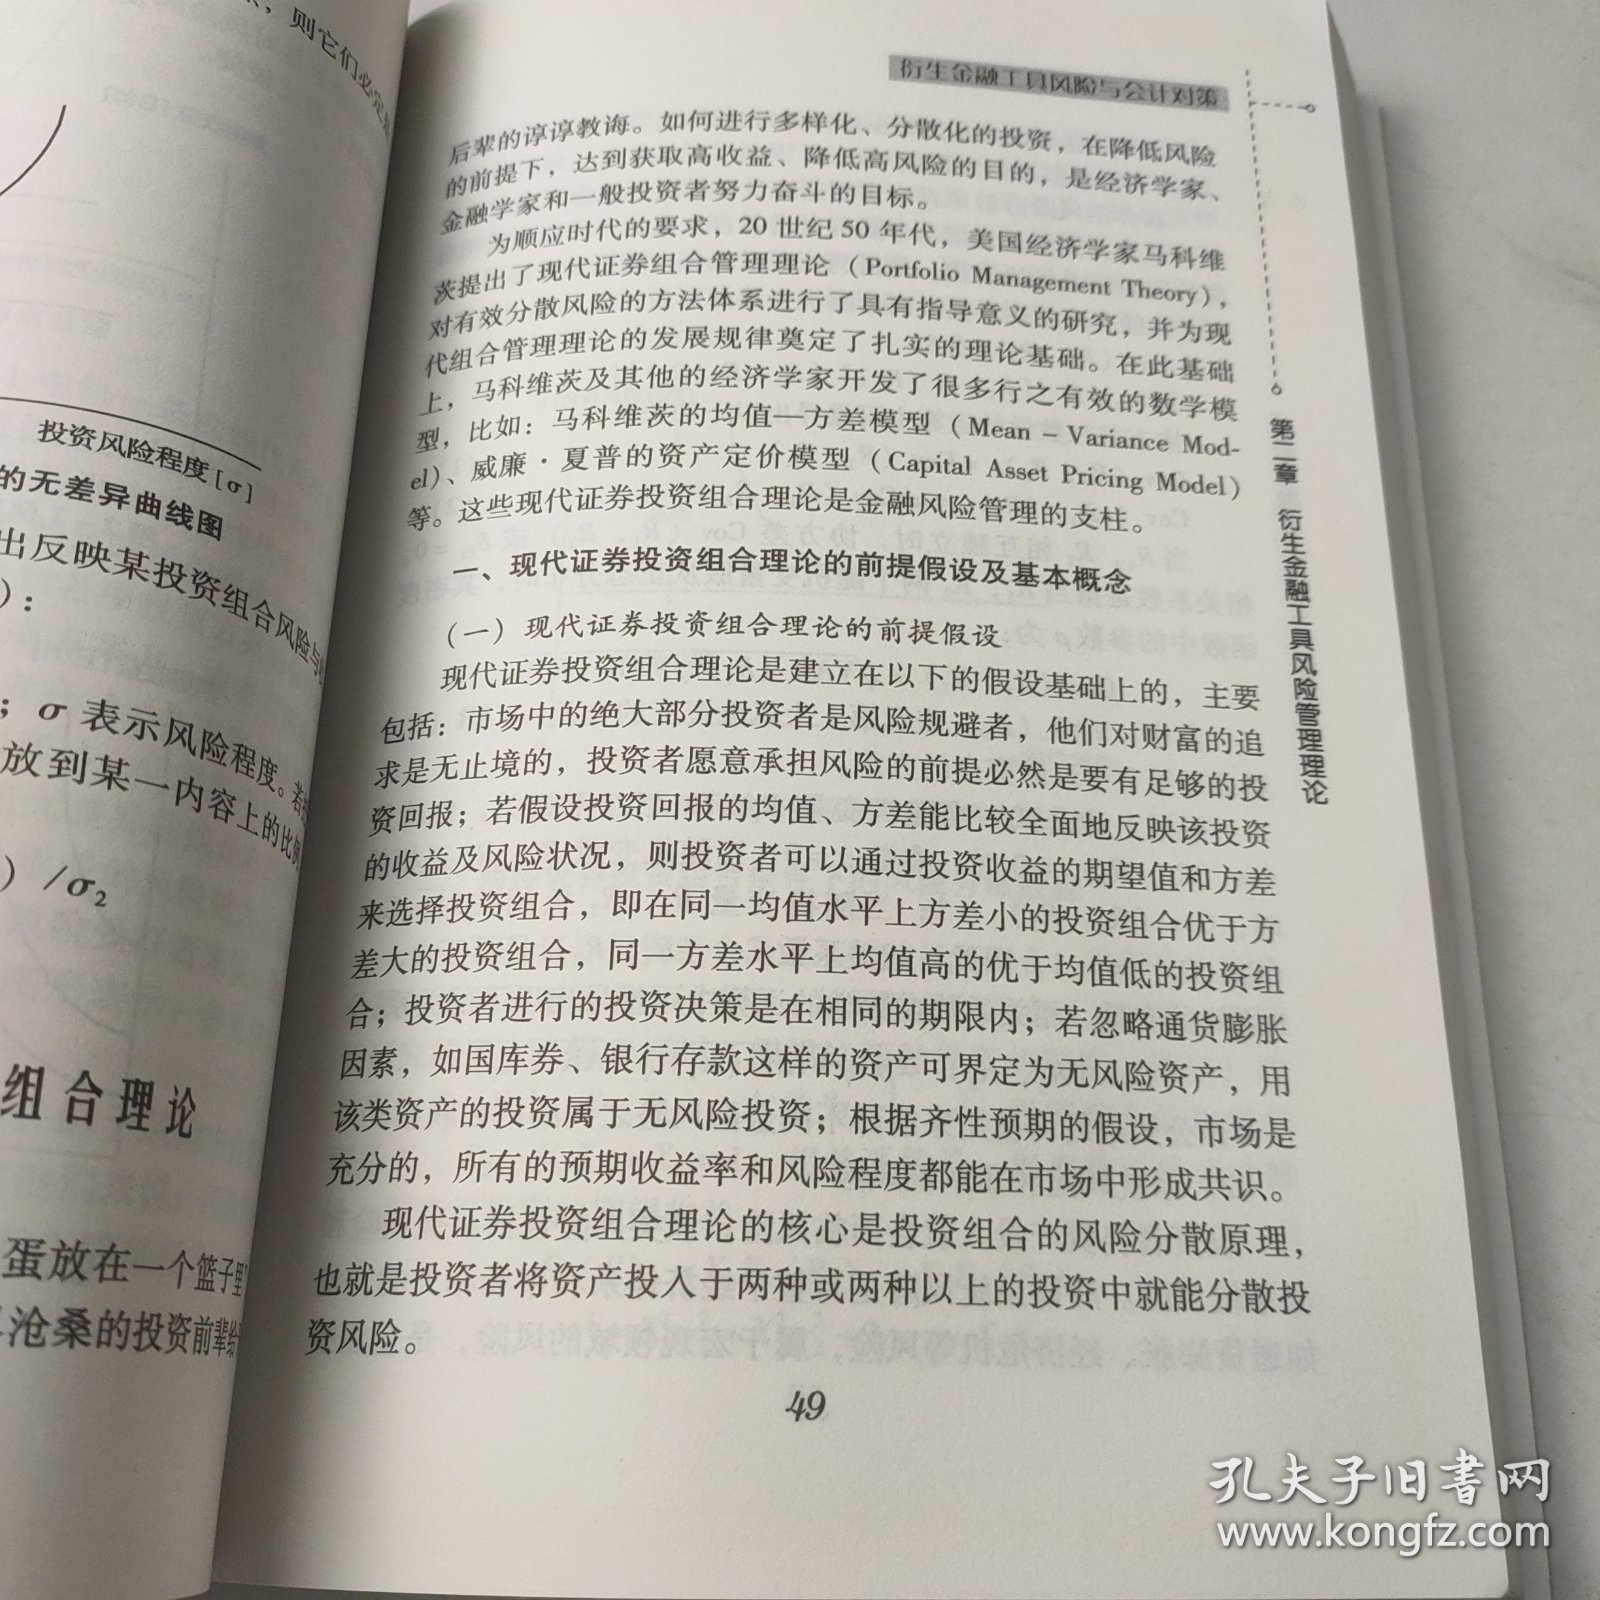 则它们必定
投资风险程度[σ]
的无差异曲线图
出反映某投资组合风险与
）：
；σ 表示风险程度。若
放到某一内容上的比例
）/σ₂
组合理论
蛋放在一个篮子里
沧桑的投资前辈给
衍生金融工具风险与会计对策
后辈的谆谆教诲。如何进行多样化、分散化的投资，在降低风险
的前提下，达到获取高收益、降低高风险的目的，是经济学家、
金融学家和一般投资者努力奋斗的目标。
为顺应时代的要求，20 世纪 50 年代，美国经济学家马科维
茨提出了现代证券组合管理理论（Portfolio Management Theory），
对有效分散风险的方法体系进行了具有指导意义的研究，并为现
代组合管理理论的发展规律奠定了扎实的理论基础。在此基础
上，马科维茨及其他的经济学家开发了很多行之有效的数学模
型，比如：马科维茨的均值—方差模型（Mean – Variance Mod-
el）、威廉·夏普的资产定价模型（Capital Asset Pricing Model）
等。这些现代证券投资组合理论是金融风险管理的支柱。
一、现代证券投资组合理论的前提假设及基本概念
（一）现代证券投资组合理论的前提假设
现代证券投资组合理论是建立在以下的假设基础上的，主要
包括：市场中的绝大部分投资者是风险规避者，他们对财富的追
求是无止境的，投资者愿意承担风险的前提必然是要有足够的投
资回报；若假设投资回报的均值、方差能比较全面地反映该投资
的收益及风险状况，则投资者可以通过投资收益的期望值和方差
来选择投资组合，即在同一均值水平上方差小的投资组合优于方
差大的投资组合，同一方差水平上均值高的优于均值低的投资组
合；投资者进行的投资决策是在相同的期限内；若忽略通货膨胀
因素，如国库券、银行存款这样的资产可界定为无风险资产，用
该类资产的投资属于无风险投资；根据齐性预期的假设，市场是
充分的，所有的预期收益率和风险程度都能在市场中形成共识。
现代证券投资组合理论的核心是投资组合的风险分散原理，
也就是投资者将资产投入于两种或两种以上的投资中就能分散投
资风险。
49
第二章 衍生金融工具风险管理理论
孔夫子旧书网
www.kongfz.com